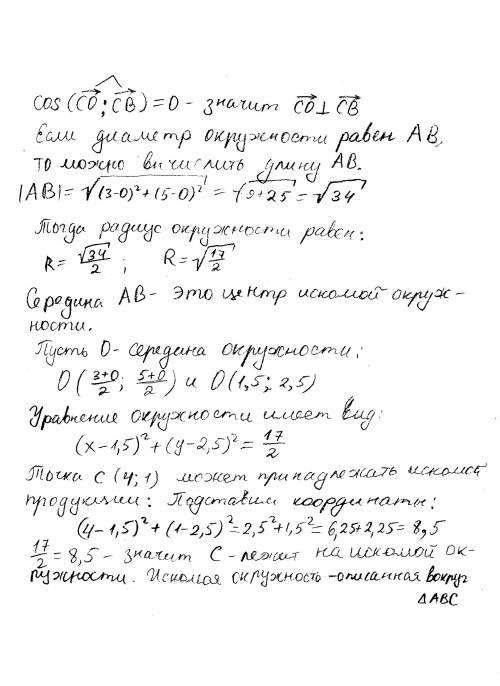 cos(CO; CB) = 0 - значит CO ⊥ CB
Если диаметр окружности равен AB,
то можно вычислить длину AB.
|AB| = √((3-0)²+(5-0)²) = √(9+25) = √34
Тогда радиус окружности равен:
R = √34/2 ; R = √(17/2)
Середина AB - это центр искомой окруж-
ности.
Пусть O - середина окружности;
O(3+0/2; 5+0/2) и O(1,5; 2,5)
Уравнение окружности имеет вид:
(x-1,5)²+(y-2,5)² = 17/2
Точка C (4; 1) может принадлежать искомой
продукции: Подставим координаты:
(4-1,5)²+(1-2,5)² = 2,5²+1,5² = 6,25+2,25 = 8,5
17/2 = 8,5 - значит C - лежит на искомой ок-
ружности. Искомая окружность - описанная вокруг
△ABC